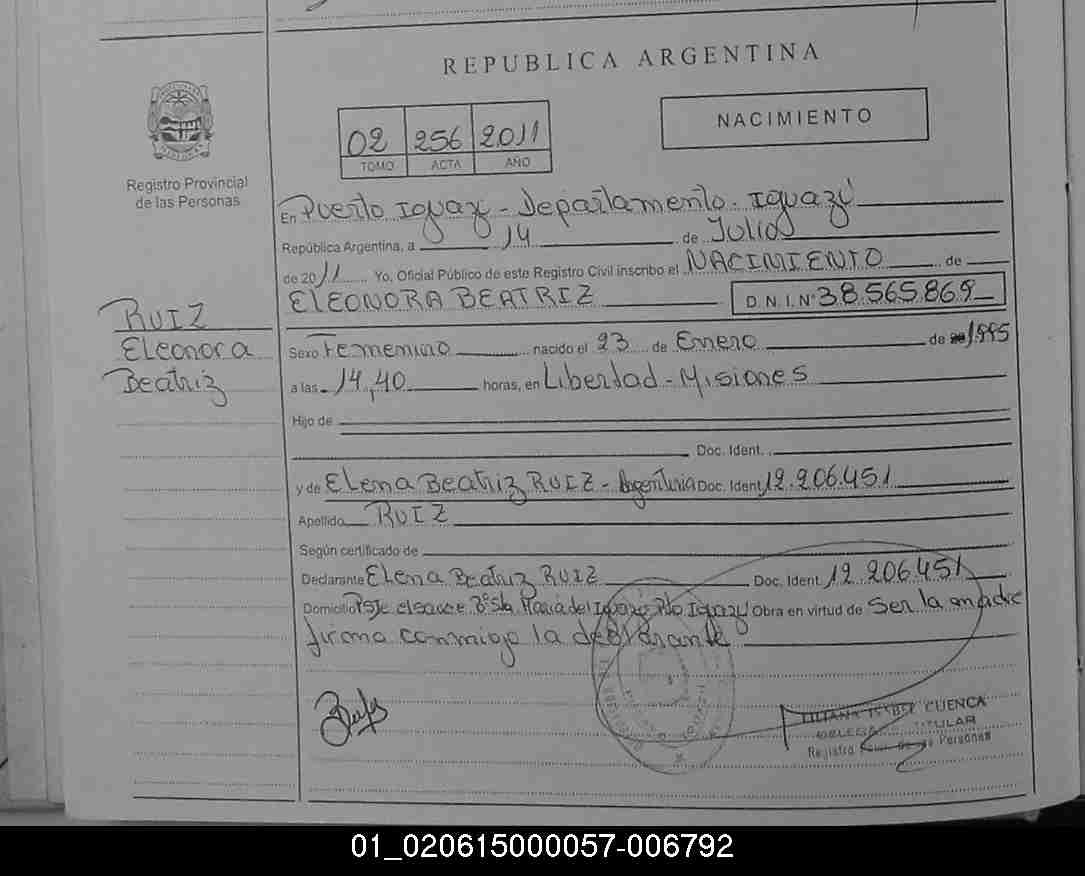 REPUBLICA ARGENTINA
02 256 2011
TOMO ACTA AÑO
NACIMIENTO
Registro Provincial
de las Personas
En Puerto Iguazú - Departamento. Iguazú
República Argentina, a 14 de Julio
de 2011 Yo, Oficial Público de este Registro Civil inscribo el NACIMIENTO de
ELEONORA BEATRIZ D.N.I.N° 38.565.869
RUIZ
Eleonora
Beatriz
Sexo Femenino nacido el 23 de Enero de 1995
a las 14,40 horas, en Libertad - Misiones
Hijo de
Doc. Ident.
y de Elena Beatriz RUIZ - Argentina Doc. Ident. 12.206.451
Apellido RUIZ
Según certificado de
Declarante Elena Beatriz RUIZ Doc. Ident. 12 206.451
Domicilio Pje el sauce B° Sta Maria del Iguazú Pto Iguazú Obra en virtud de Ser la madre
firma conmigo la declarante
LILIANA ISABEL CUENCA
DELEGADA TITULAR
Registro Prov. de las Personas
01_020615000057-006792